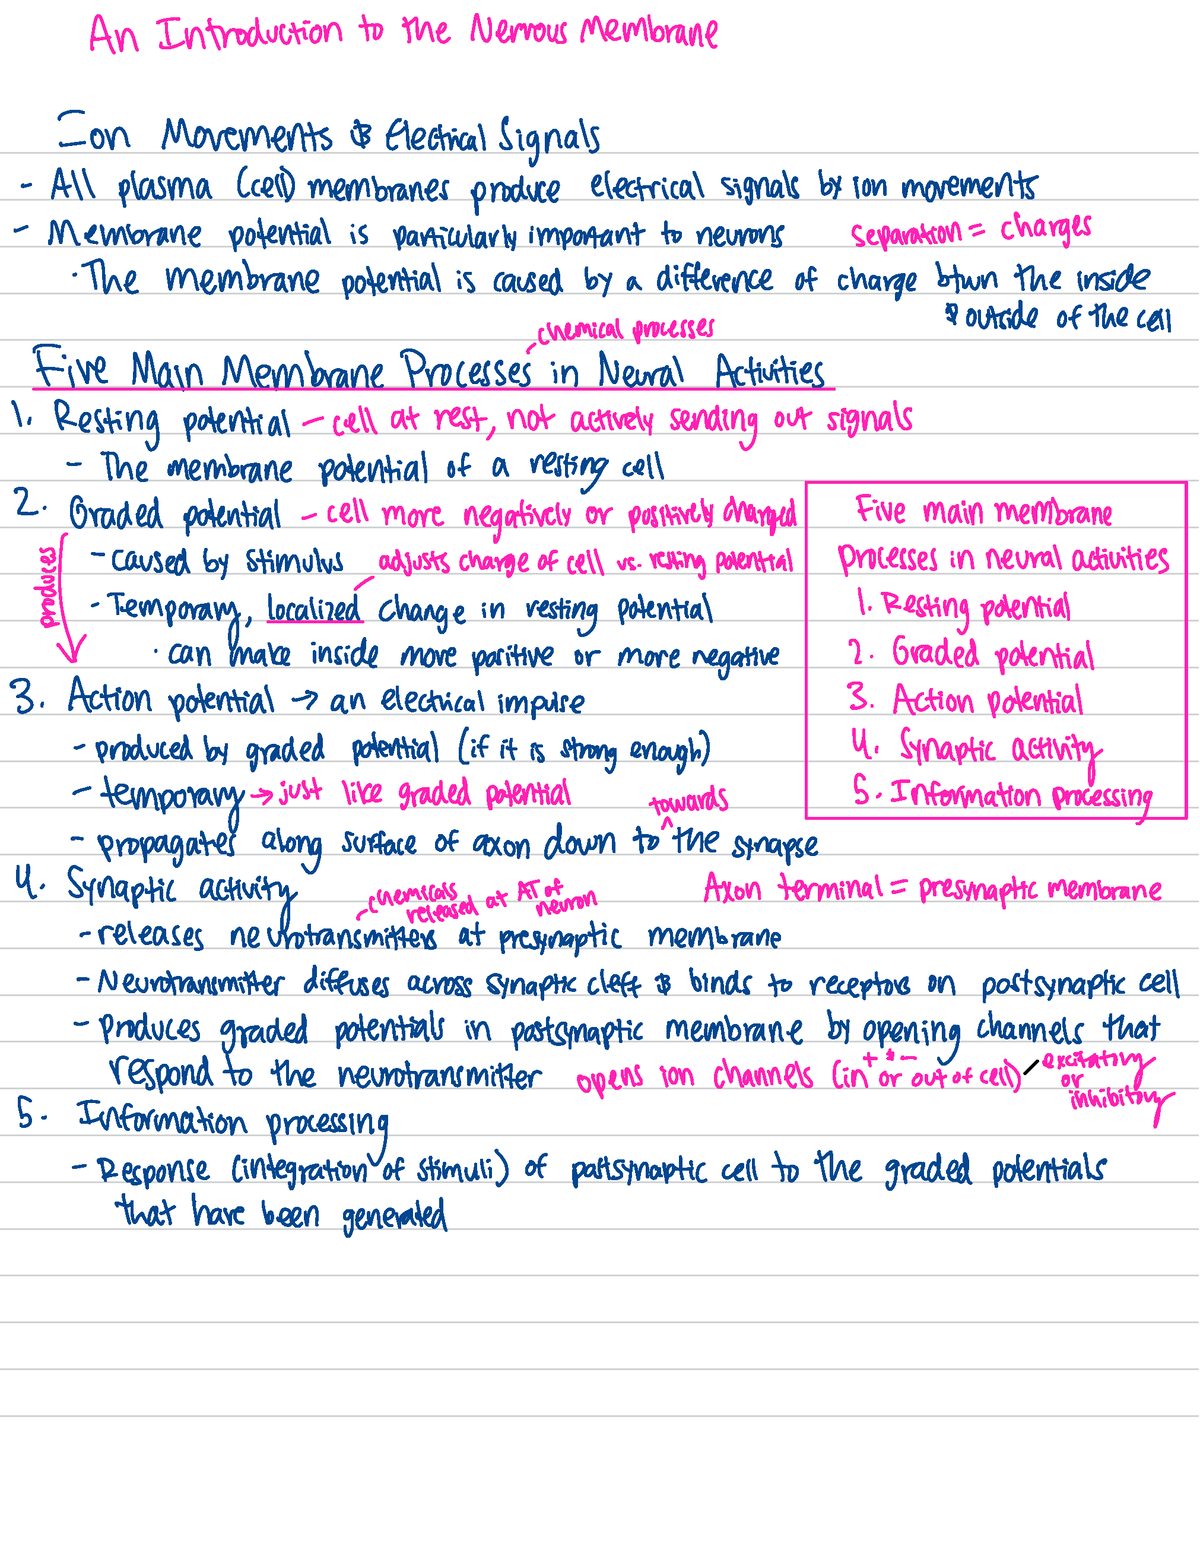 An Introduction to the Nervous Membrane
Ion Movements & Electrical Signals
- All plasma (cell) membranes produce electrical signals by ion movements
- Membrane potential is particularly important to neurons
separation = charges
· The membrane potential is caused by a difference of charge btwn the inside
& outside of the cell
chemical processes
Five Main Membrane Processes in Neural Activities
1. Resting potential - cell at rest, not actively sending out signals
- The membrane potential of a resting cell
2. Graded potential - cell more negatively or positively charged
produces
- caused by stimulus
adjusts charge of cell vs. resting potential
- Temporary, localized change in resting potential
· can make inside more positive or more negative
3. Action potential → an electrical impulse
- produced by graded potential (if it is strong enough)
- temporary → just like graded potential
towards
- propagates along surface of axon down to ^ the synapse
Five main membrane
processes in neural activities
1. Resting potential
2. Graded potential
3. Action potential
4. Synaptic activity
5. Information processing
4. Synaptic activity
chemicals
released at AT of
neuron
Axon terminal = presynaptic membrane
- releases neurotransmitters at presynaptic membrane
- Neurotransmitter diffuses across synaptic cleft & binds to receptors on postsynaptic cell
- produces graded potentials in postsynaptic membrane by opening channels that
respond to the neurotransmitter
+ & -
opens ion channels (in or out of cell)
excitatory
or
inhibitory
5. Information processing
- Response (integration of stimuli) of postsynaptic cell to the graded potentials
that have been generated